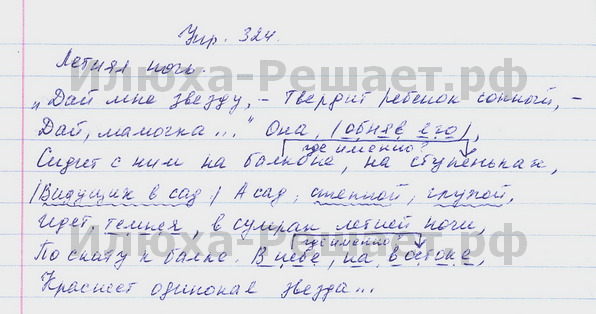 Упр. 324.
Летняя ночь.
Илюха-Решает.рф
„Дай мне звезду, – твердит ребёнок сонный, –
Дай, мамочка..." Она, (обняв его),
где именно?
Сидит с ним на балконе, на ступеньках,
/Ведущих в сад/ А сад, степной, глухой,
Идет, темнея, в сумрак летней ночи,
где именно?
Илюха-Решает.рф
По скату к балке. В небе, на востоке,
Краснеет одинокая звезда...